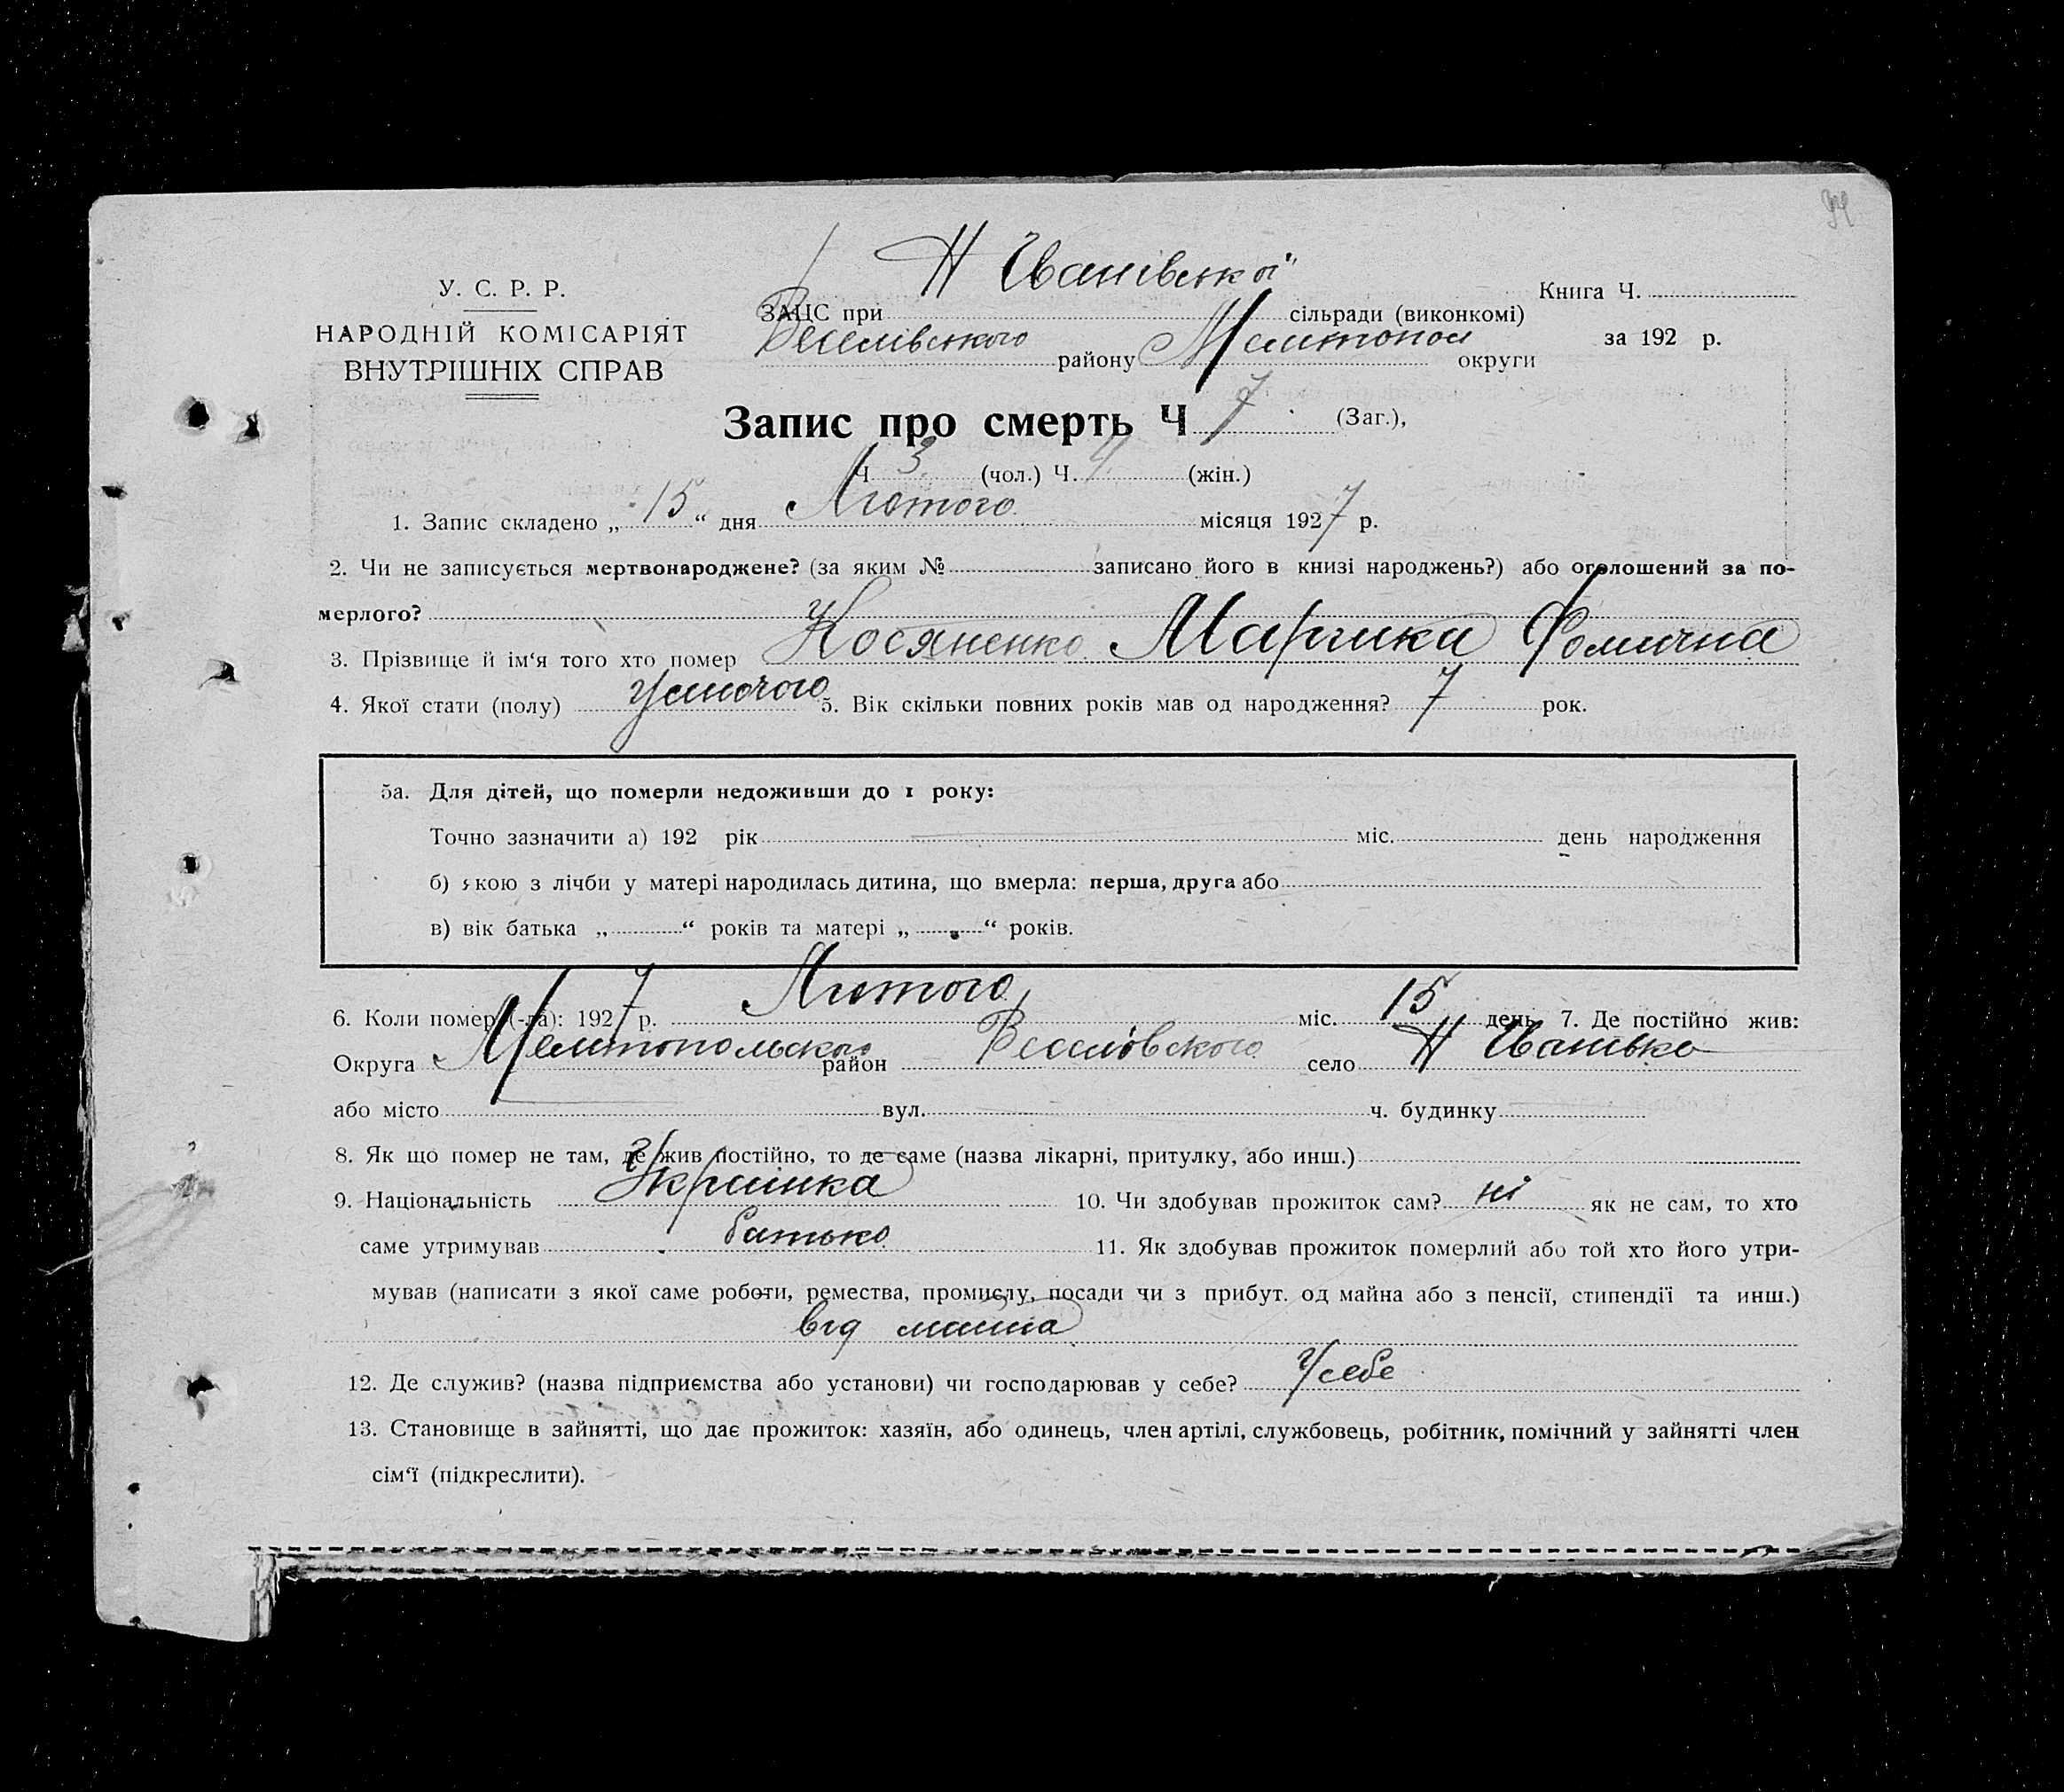 Н Іванівської
У. С. Р. Р.
НАРОДНІЙ КОМІСАРІЯТ
ВНУТРІШНІХ СПРАВ
ЗАЦС при сільради (виконкомі)
Веселівського району Мелитопол округи
Книга Ч.
за 192 р.
Запис про смерть Ч 7 (Заг.),
Ч 3 (чол.) Ч. 4 (жін.)
1. Запис складено „ 15 “ дня Лютого місяця 1927 р.
2. Чи не записується мертвонароджене? (за яким № записано його в книзі народжень?) або оголошений за по-
мерлого?
3. Прізвище й ім‘я того хто помер Косяненко Фомична
4. Якої стати (полу) 5. Вік скільки повних років мав од народження? 7 рок.
5а. Для дітей, що померли недоживши до 1 року:
Точно зазначити а) 192 рік міс. день народження
б) якою з лічби у матері народилась дитина, що вмерла: перша, друга або
в) вік батька „ “ років та матері „ “ років.
6. Коли помер (-ла): 1927 р. Лютого міс. 15 день 7. Де постійно жив:
Округа Мелитопольского район Веселовского село Н Іванівка
або місто вул. ч. будинку
8. Як що помер не там, де жив постійно, то де саме (назва лікарні, притулку, або инш.)
9. Національність Українка 10. Чи здобував прожиток сам? ні як не сам, то хто
саме утримував батько 11. Як здобував прожиток померлий або той хто його утри-
мував (написати з якої саме роботи, ремества, промислу, посади чи з прибут. од майна або з пенсії, стипендії та инш.)
від майна
12. Де служив? (назва підприємства або установи) чи господарював у себе? У себе
13. Становище в зайнятті, що дає прожиток: хазяїн, або одинець, член артілі, службовець, робітник, помічний у зайнятті член
сім‘ї (підкреслити).